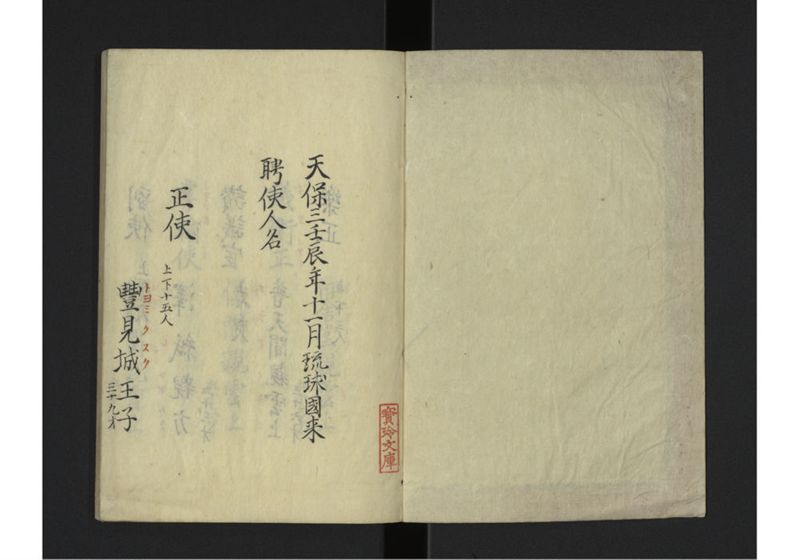 天保三壬辰年十一月琉球國来
聘使人名
正使
上下十五人
トヨミクスク
豐見城王子
三十九才
寳玲文庫